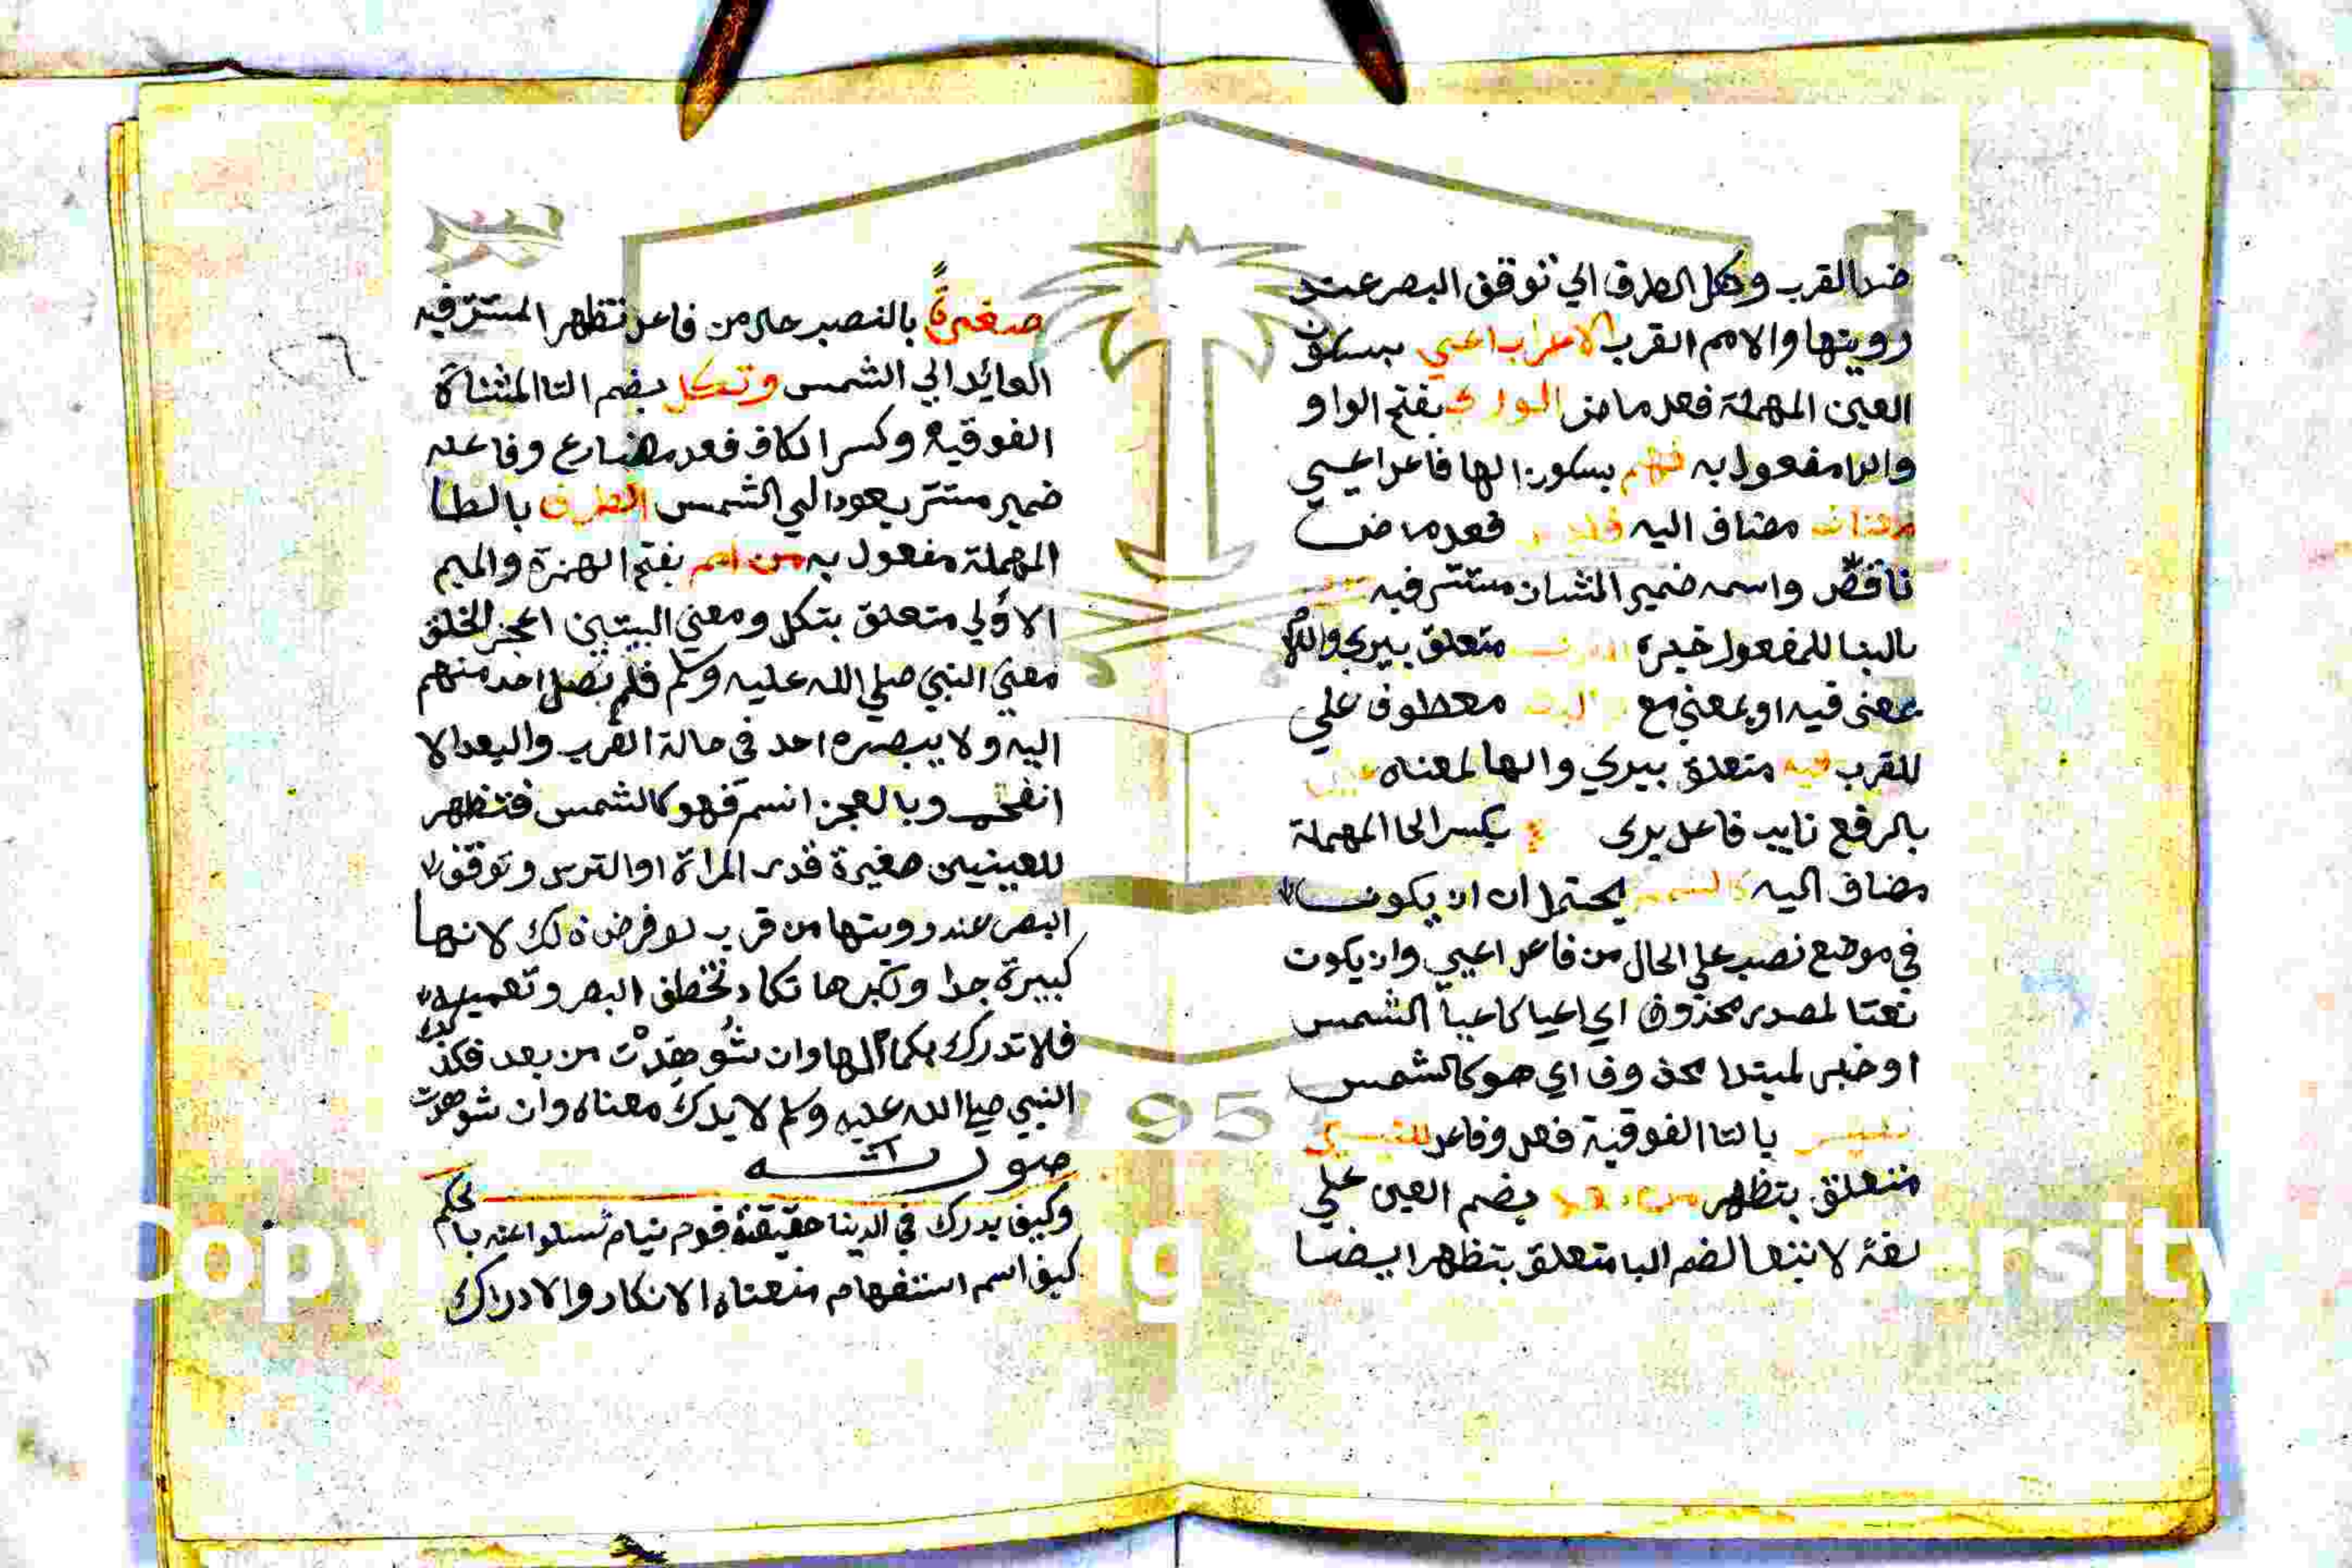 ضد القرب وكل الطرف اي توقف البصر عند
رويتها والامم القرب الاعراب اعيي بسكون
العين المهملة فعل ماض الورى بفتح الواو
والرا مفعول به فهم بسكون الها فاعل اعيي
معناه مضاف اليه فليس فعل ماض
ناقص واسمه ضمير الشان مستتر فيه
بالبنا للمفعول خبره متعلق بيرى واللام
بمعنى في او بمعنى مع معطوف علي
للقرب فيه متعلق بيري والها لمعناه
بالرفع نايب فاعل يرى بكسر الحا المهملة
مضاف اليه كالشمس يحتمل ان ان يكون
في موضع نصب علي الحال من فاعل اعيي وان يكون
نعتا لمصدر محذوف اي اعيا كاعيا الشمس
او خبر لمبتدا محذوف اي هو كالشمس
بالتا الفوقية فعل وفاعل للعينين
متعلق بتظهر من بعد بضم العين علي
لغة لا تبعا لضم البا متعلق بتظهر ايضا
صغيرةً بالنصب حال من فاعل تظهر المستتر فيه
العايد الي الشمس وتكل بضم التا المثناة
الفوقية وكسر الكاف فعل مضارع وفاعله
ضمير مستتر يعود الي الشمس الطرف بالطا
المهملة مفعول به من امم بفتح الهمزة والميم
الاولي متعلق بتكل ومعني البيتين اعجز الخلق
معني النبي صلي الله عليه وسلم فلم يصل احد منهم
اليه ولا يبصره احد في حالة القرب والبعد الا
انفحم وبالعجز انسم فهو كالشمس فتظهر
للعينين صغيرة قدر المراة او الترس وتوقف
البصر عند رويتها من قرب لو فرض ذلك لانها
كبيرة جدا وكبرها تكاد تخطف البصر وتعميه
فلا تدرك بكمالها وان شوهدت من بعد فكذلك
النبي صلي الله عليه وسلم لا يدرك معناه وان شوهدت
صورته
وكيف يدرك في الدينا حقيقته قوم نيام تسلوا عنه بالحلم
كيف اسم استفهام معناه الانكار والادراك